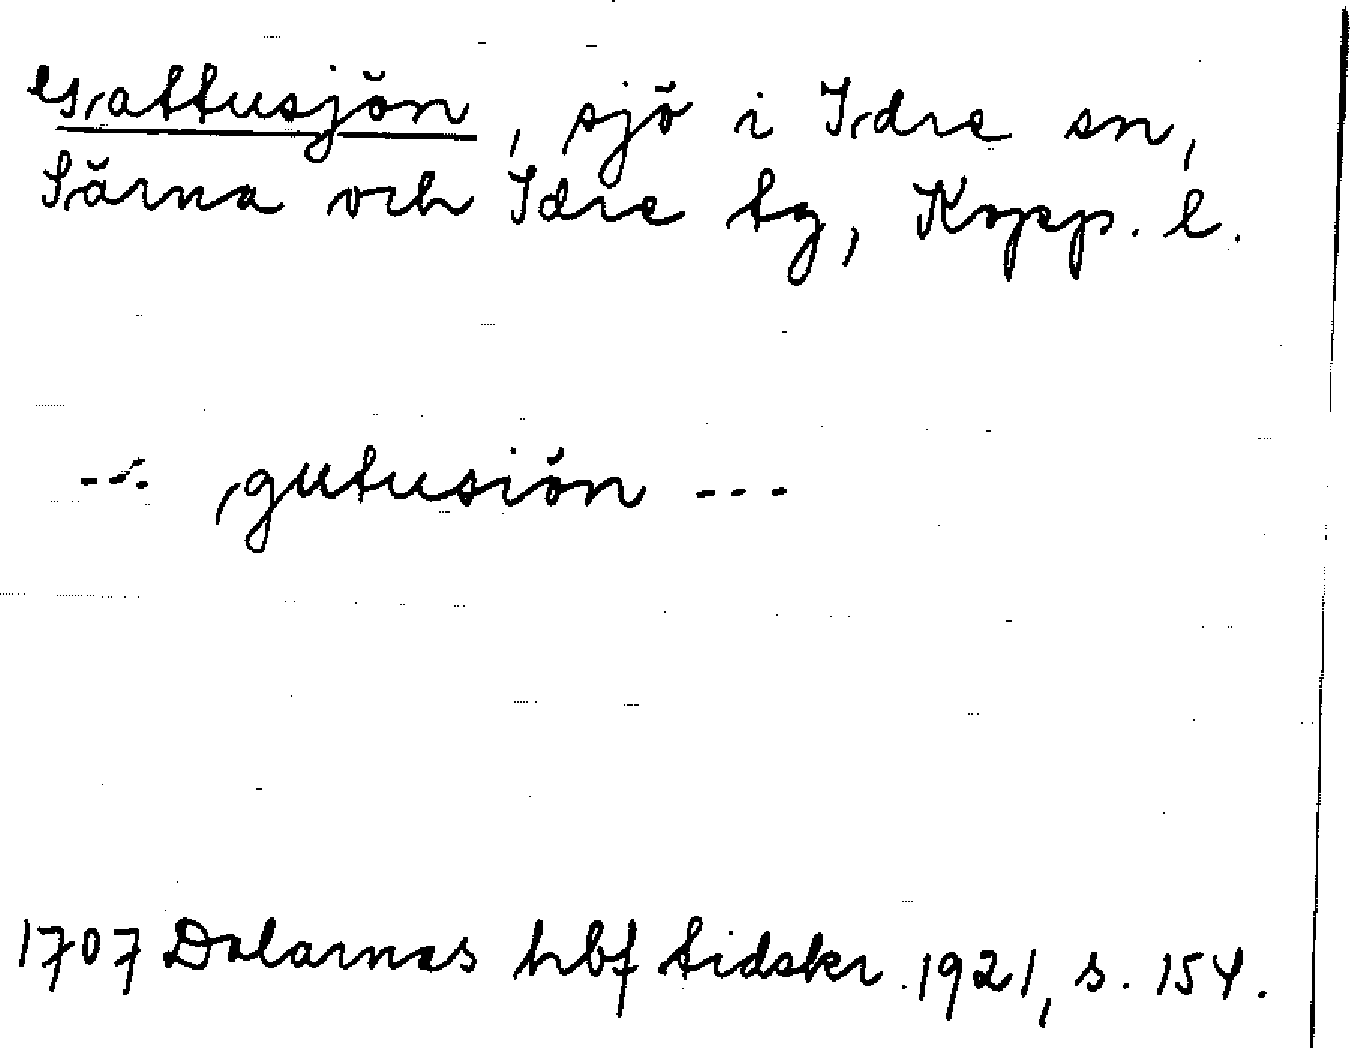 Gattusjön, sjö i Idre sn,
Särna och Idre tg, Kopp. l.
--- gutusiön ---
1707 Dalarnas hbf tidskr. 1921, s. 154.